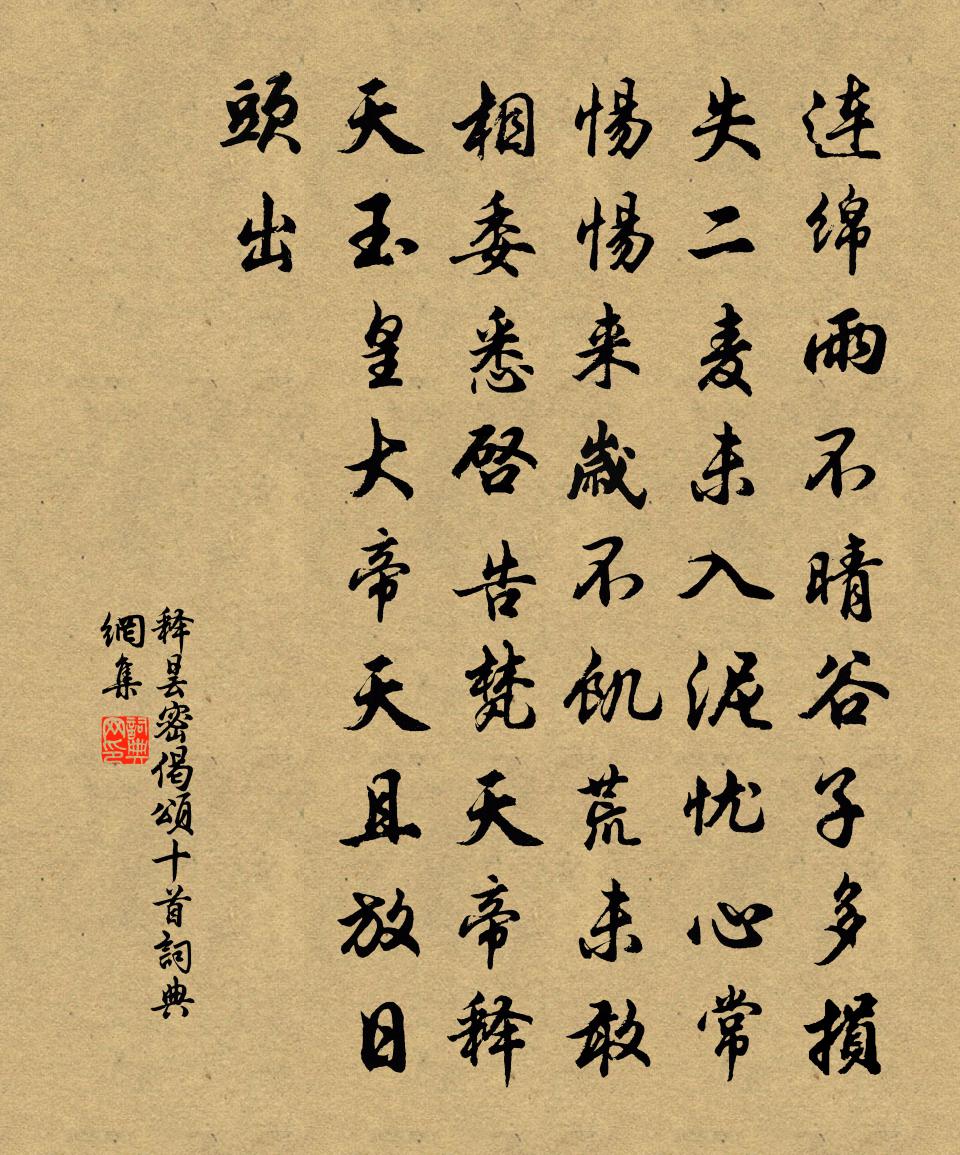 连绵雨不晴谷子多损
失二麦未入泥忧心常
惕惕来岁不饥荒未敢
相委悉启告梵天帝释
天玉皇大帝天且放日
頭出
释昙密偈頌十首詞典
網集
詞典
网印